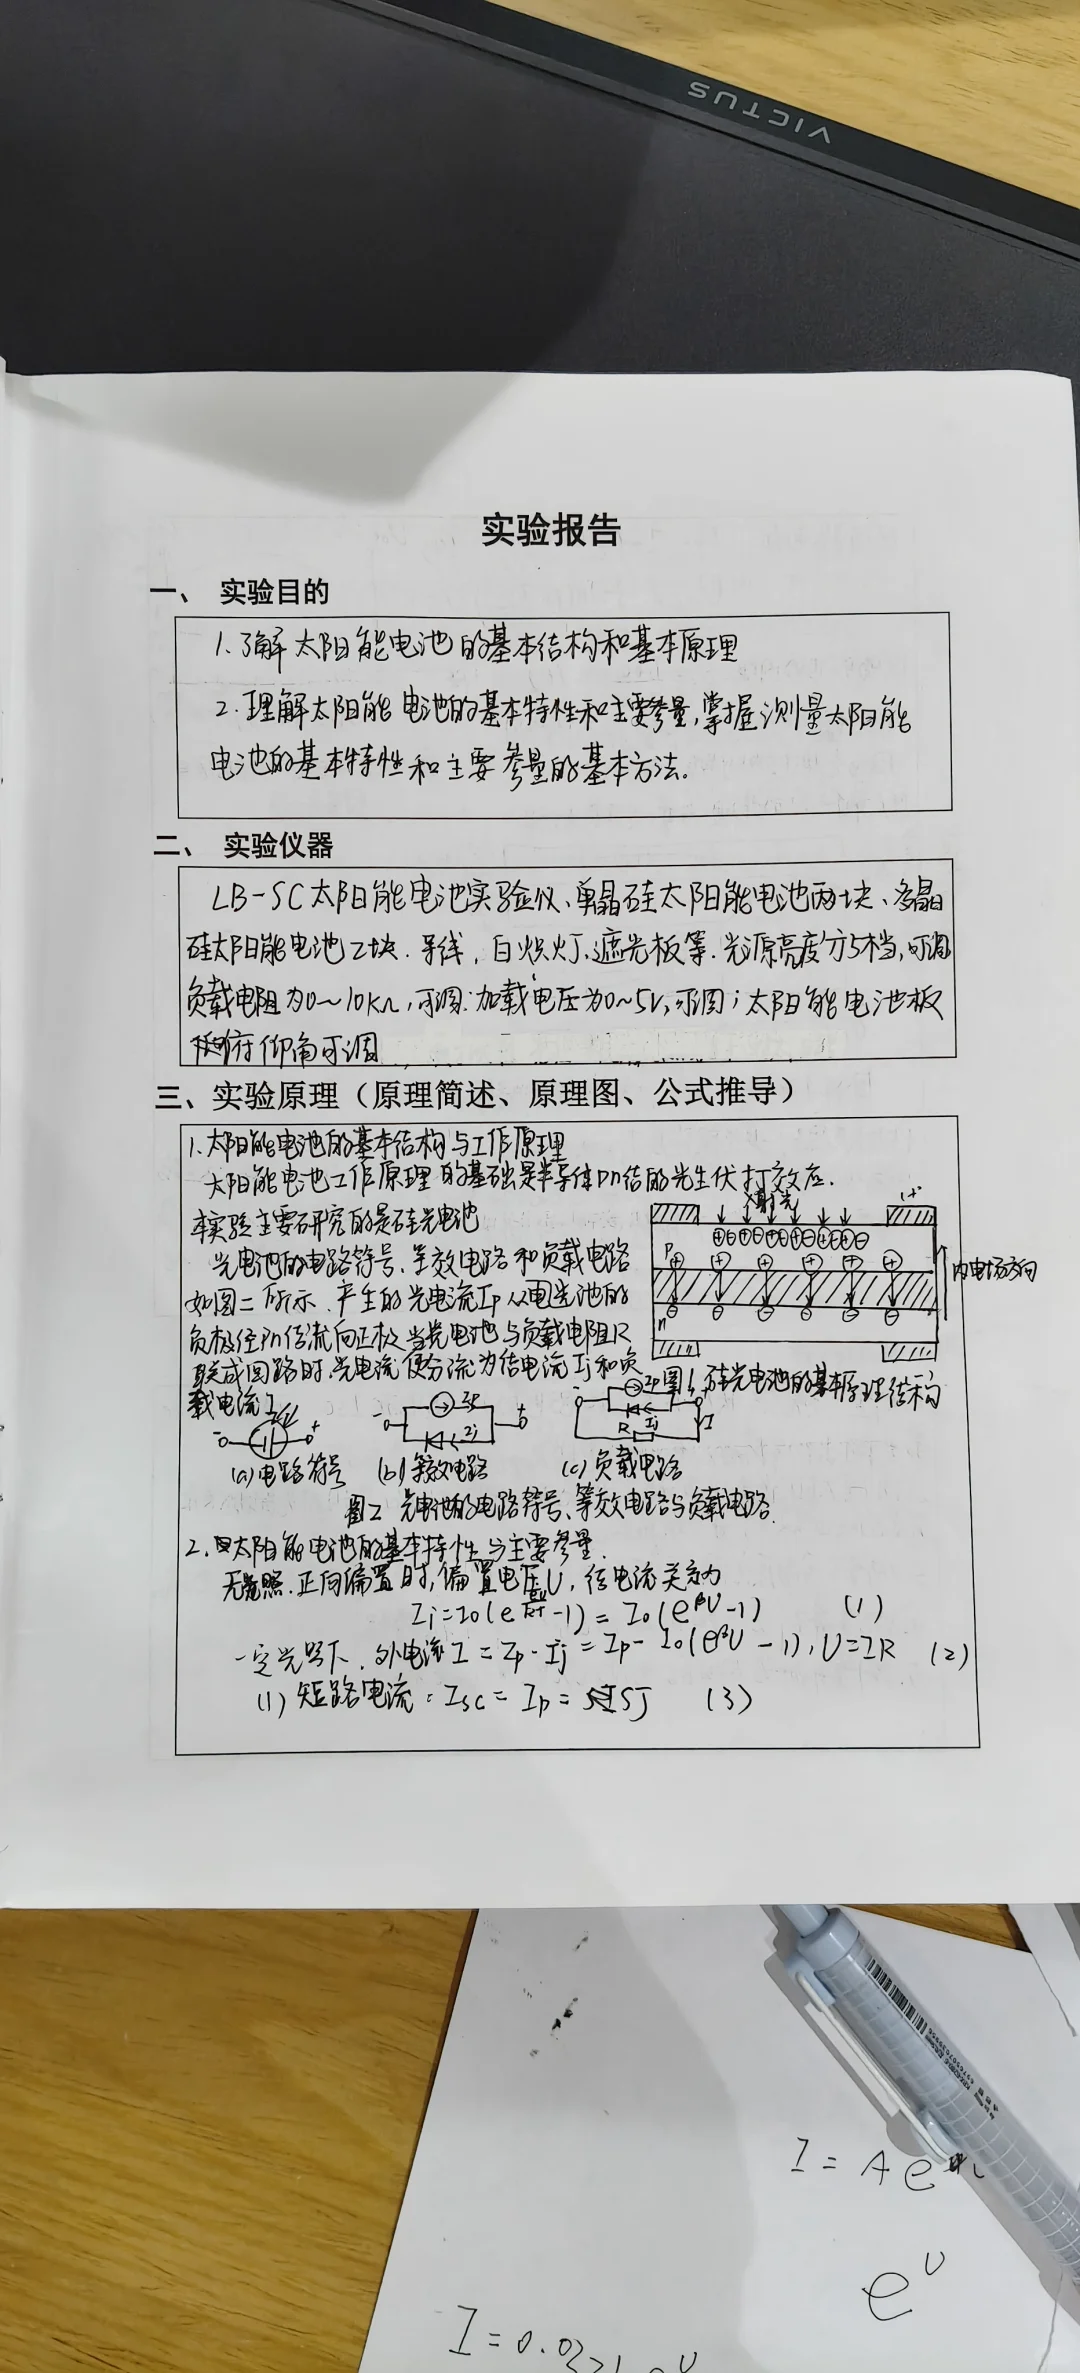 VICTUS
实验报告
一、 实验目的
1.了解太阳能电池的基本结构和基本原理
2.理解太阳能电池的基本特性和主要参量,掌握测量太阳能
电池的基本特性和主要参量的基本方法.
二、 实验仪器
LB-SC太阳能电池实验仪、单晶硅太阳能电池两块、多晶
硅太阳能电池2块.导线,白炽灯、遮光板等.光源亮度分5档,可调
负载电阻为0~10KΩ,可调:加载电压为0~5V,可调;太阳能电池板
俯仰角可调
三、实验原理(原理简述、原理图、公式推导)
1.太阳能电池的基本结构与工作原理
太阳能电池工作原理的基础是半导体pn结的光生伏打效应.
本实验主要研究的是硅光电池
光电池的电路符号、等效电路和负载电路
如图二所示.产生的光电流Ip从电光池的
负极径Pn结流向正极,当光电池与负载电阻R
联成回路时.光电流便分流为结电流Ij和负
载电流I
P
n
内电场方向
图1.硅光电池的基本原理结构
Ip
Ij
Ip
Ij
R
I
(a)电路符号 (b)等效电路 (c)负载电路
图二 光电池的电路符号、等效电路与负载电路.
2.太阳能电池的基本特性与主要参量.
无光照.正向偏置时,偏置电压U,结电流关系为
-1) = I₀(e^βU-1) (1)
一定光照下.外电流I = Ip-Ij = Ip-I₀(e^βU-1),U=IR (2)
(1)短路电流:Isc = Ip = SJ (3)
I = A e
e^U
I=0.0